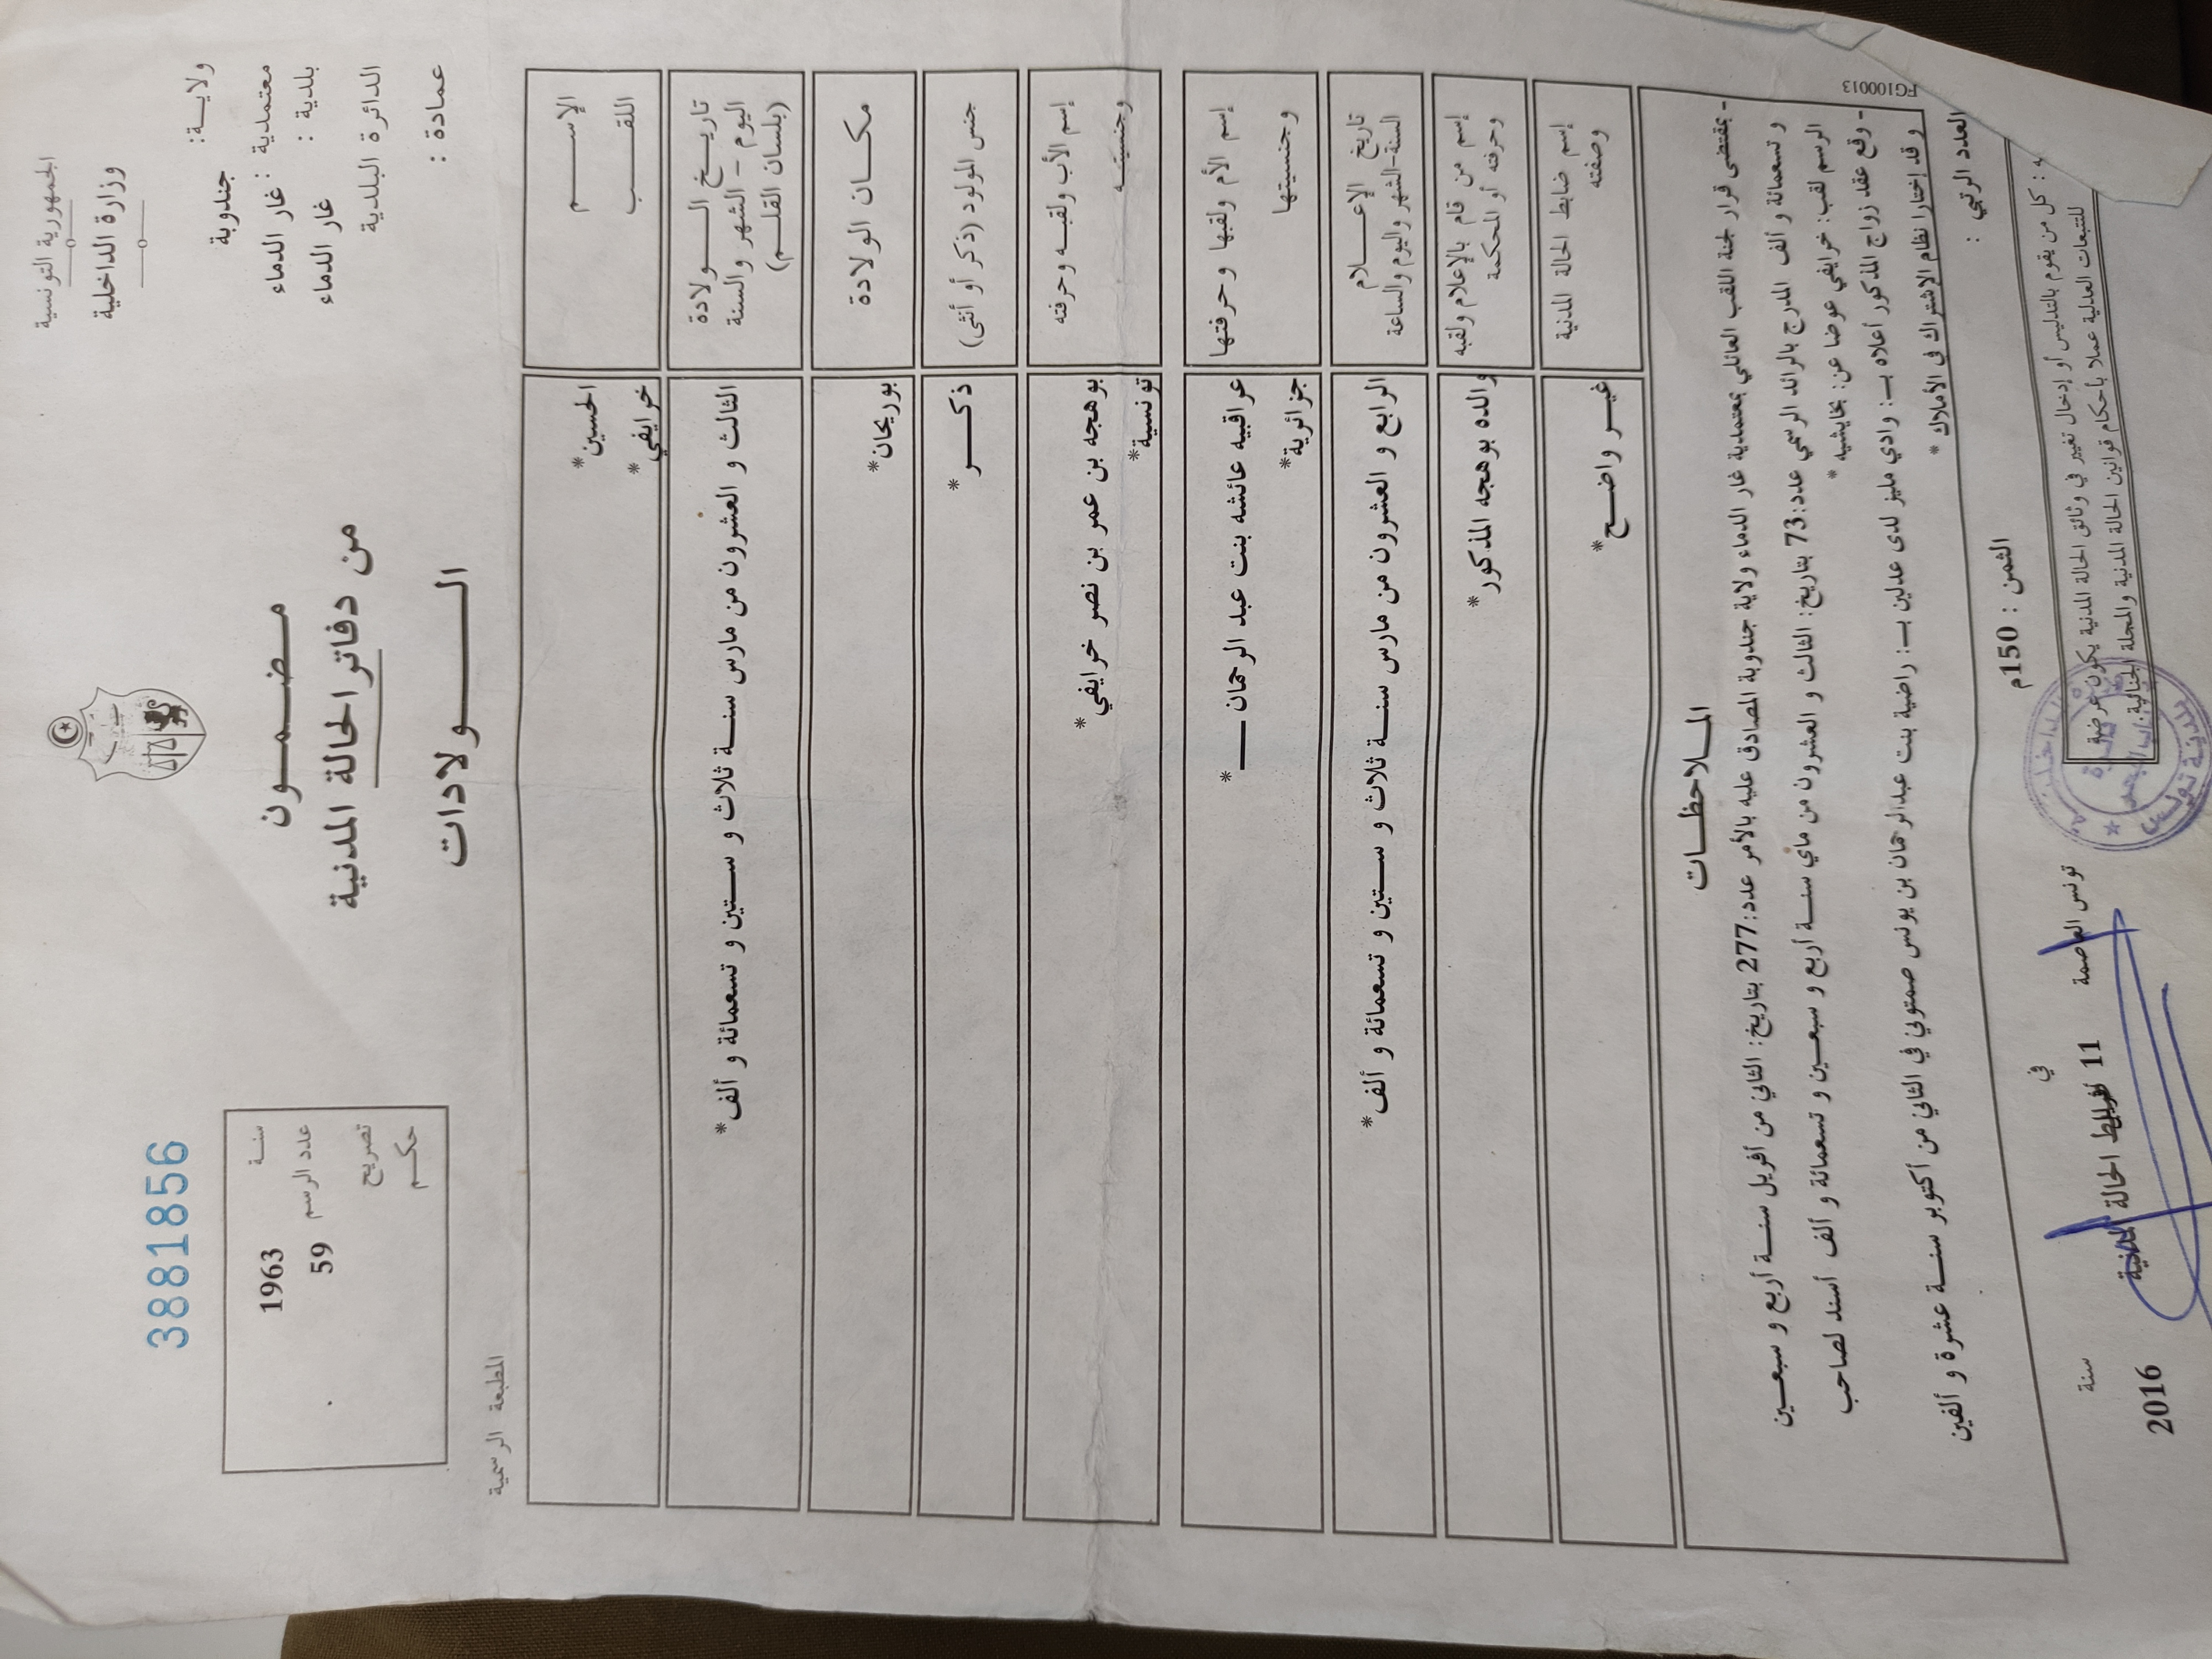 الجمهورية التونسية
وزارة الداخلية
ولايــة:
جندوبة
معتمدية : غار الدماء
بلدية : غار الدماء
الدائرة البلدية
عمادة :
مضـمــون
من دفاتر الحالة المدنية
الـــولادات
38818856
سنـة 1963
عدد الرسم 59
تصريح
حكـم
المطبعة الرسمية
الإســـم
الحسين*
اللقــب
خرايفي*
تاريــخ الــولادة
اليوم - الشهر والسنة
(بلسان القلـم)
الثالث و العشرون من مارس سنـة ثلاث و ستين و تسعمائة و ألف*
مكــان الولادة
بوريحان*
جنس المولود (ذكر أو أنثى)
ذكــر*
إسم الأب ولقبـه وحرفته
بوهجه بن عمر بن نصر خرايفي*
وجنسيتـه
تونسية*
إسم الأم ولقبها وحرفتها
عرافيه عائشه بنت عبد الرحمان ــ*
وجنسيتها
جزائرية*
تاريخ الإعـــلام
السنة-الشهر واليوم والساعة
الرابع و العشرون من مارس سنـة ثلاث و ستين و تسعمائة و ألف*
إسم من قام بالإعلام ولقبه
وحرفته أو المحكمة
والده بوهجه المذكور*
إسم ضابط الحالة المدنية
وصفته
غيـر واضـح*
المـــلاحظـــات
- بمقتضى قرار لجنة اللقب العائلي بمعتمدية غار الدماء ولاية جندوبة المصادق عليه بالأمر عدد:277 بتاريخ: الثاني من أفريل سنـة أربع و سبعـين
و تسعمائة و ألف المدرج بالرائد الرسمي عدد:73 بتاريخ: الثالث و العشرون من ماي سنـة أربع و سبعـين و تسعمائة و ألف أسند لصاحب
الرسم لقب: خرايفي عوضا عن: بخايشيه *
- وقع عقد زواج المذكور أعلاه بـ: وادي مليز لدى عدلين بـ: راضية بنت عبدالرحمان بن يونس صمتوني في الثاني من أكتوبر سنـة عشرة و ألفين
و قد إختارا نظام الإشتراك في الأملاك *
FG100013
العدد الرتبي :
الثمن : 150م
كل من يقوم بالتدليس أو إدخال تغيير في وثائق الحالة المدنية يكون عرضة
للتتبعات العدلية عملا بأحكام قوانين الحالة المدنية والمجلة الجنائية.
تونس العاصمة
في 11
سنة 2016
ضابط الحالة المدنية